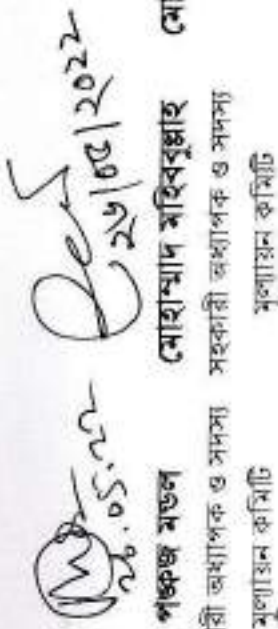 ২৬.০৫.২২
পঙ্কজ মন্ডল
রী অধ্যাপক ও সদস্য
মূল্যায়ন কমিটি
২৬/০৫/২০২২
মোহাম্মাদ মহিববুল্লাহ
সহকারী অধ্যাপক ও সদস্য
মূল্যায়ন কমিটি
মো